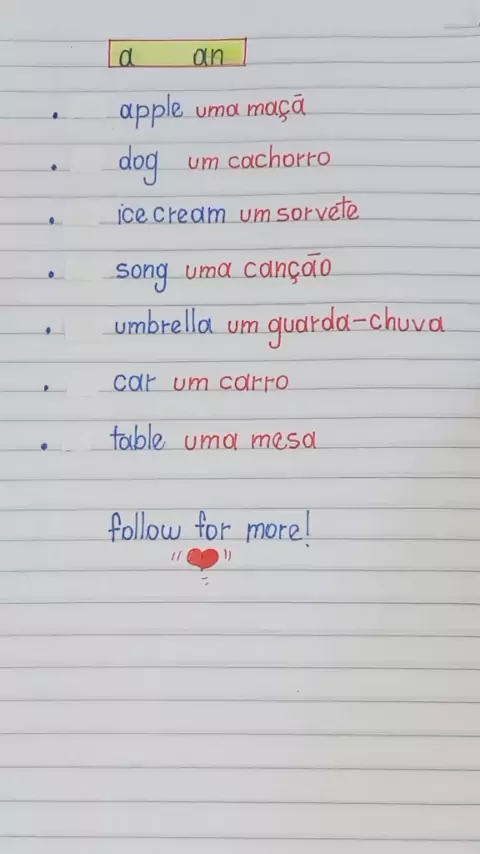 a an
apple uma maçã
dog um cachorro
ice cream um sorvete
song uma canção
umbrella um guarda-chuva
car um carro
table uma mesa
follow for more!